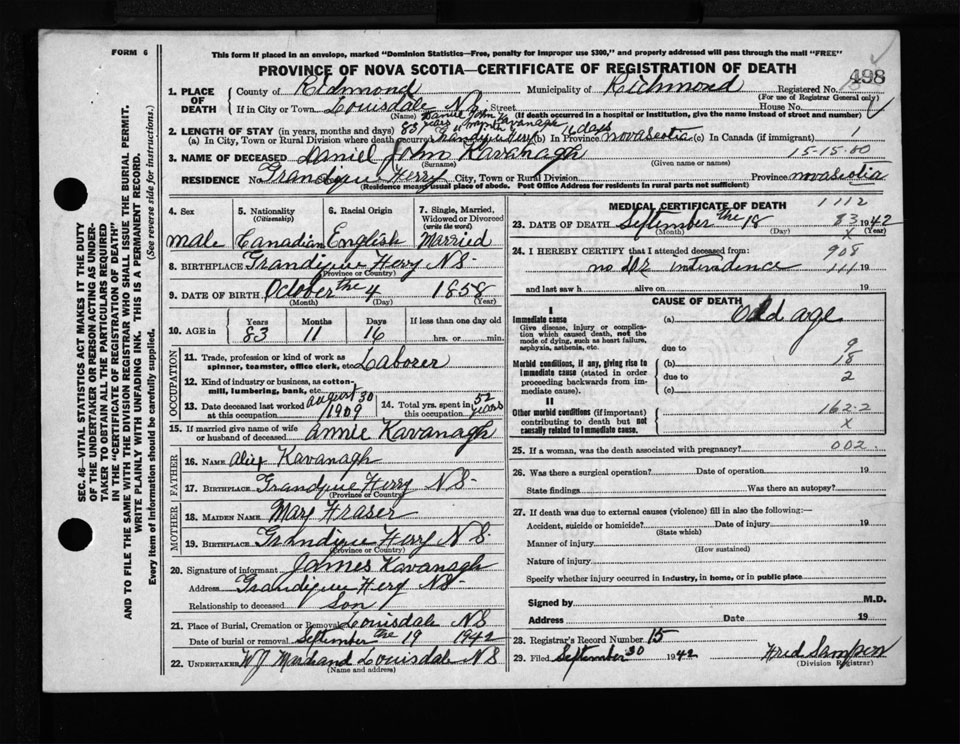 FORM 6
This form if placed in an envelope, marked "Dominion Statistics—Free, penalty for improper use $300," and properly addressed will pass through the mail "FREE"
PROVINCE OF NOVA SCOTIA—CERTIFICATE OF REGISTRATION OF DEATH
498
1. PLACE OF DEATH County of Richmond Municipality of Richmond Registered No.
(For use of Registrar General only)
If in City or Town Louisdale N S Street House No.
(Name) (If death occurred in a hospital or institution, give the name instead of street and number)
Daniel John Kavanagh
2. LENGTH OF STAY (in years, months and days) 83 years 11 months 16 days
(a) In City, Town or Rural Division where death occurred Grandique Ferry (b) In Province nova Scotia (c) In Canada (if immigrant) 1
3. NAME OF DECEASED Daniel John Kavanagh 15-15-00
(Surname) (Given name or names)
RESIDENCE No. Grandique Ferry City, Town or Rural Division Province nova Scotia
(Residence means usual place of abode. Post Office Address for residents in rural parts not sufficient)
SEC. 46—VITAL STATISTICS ACT MAKES IT THE DUTY
OF THE UNDERTAKER OR PERSON ACTING AS UNDER-
TAKER TO OBTAIN ALL THE PARTICULARS REQUIRED
IN THE "CERTIFICATE OF REGISTRATION OF DEATH"
AND TO FILE THE SAME WITH THE DIVISION REGISTRAR WHO SHALL ISSUE THE BURIAL PERMIT.
WRITE PLAINLY WITH UNFADING INK. THIS IS A PERMANENT RECORD.
Every item of Information should be carefully supplied. (See reverse side for instructions.)
4. Sex 5. Nationality (Citizenship) 6. Racial Origin 7. Single, Married, Widowed or Divorced (write the word)
male Canadian English Married
8. BIRTHPLACE Grandique Ferry N S
(Province or Country)
9. DATE OF BIRTH October the 4 1858
(Month) (Day) (Year)
10. AGE in Years Months Days If less than one day old
83 11 16 hrs. or min.
OCCUPATION
11. Trade, profession or kind of work as spinner, teamster, office clerk, etc. Laborer
12. Kind of industry or business, as cotton mill, lumbering, bank, etc.
13. Date deceased last worked at this occupation August 30 1909 14. Total yrs. spent in this occupation 52 years
15. If married give name of wife or husband of deceased Annie Kavanagh
FATHER
16. NAME Alex Kavanagh
17. BIRTHPLACE Grandique Ferry N S
(Province or Country)
MOTHER
18. MAIDEN NAME Mary Fraser
19. BIRTHPLACE Grandique Ferry N S
(Province or Country)
20. Signature of informant James Kavanagh
Address Grandique Fery NS
Relationship to deceased Son
21. Place of Burial, Cremation or Removal Louisdale N S
Date of burial or removal September the 19 1942
22. UNDERTAKER W J Marchand Louisdale N S
(Name and address)
MEDICAL CERTIFICATE OF DEATH 1112
23. DATE OF DEATH September the 18 83 1942
(Month) (Day) x (Year)
24. I HEREBY CERTIFY that I attended deceased from 908
no 111 19
and last saw h alive on 19
CAUSE OF DEATH
I
Immediate cause (a) Old age
Give disease, injury or complica-
tion which caused death, not the
mode of dying, such as heart failure,
asphyxia, asthenia, etc. due to 9
Morbid conditions, if any, giving rise to (b) 18
immediate cause (stated in order due to 2
proceeding backwards from im-
mediate cause). (c)
II
Other morbid conditions (if important) 162-2
contributing to death but not x
causally related to immediate cause.
25. If a woman, was the death associated with pregnancy? 002
26. Was there a surgical operation? Date of operation 19
State findings Was there an autopsy?
27. If death was due to external causes (violence) fill in also the following:—
Accident, suicide or homicide? Date of injury 19
(State which)
Manner of injury
(How sustained)
Nature of injury
Specify whether injury occurred in industry, in home, or in public place
Signed by M.D.
Address Date 19
28. Registrar's Record Number 15
29. Filed September 30 1942 Fred Sampson
(Division Registrar)